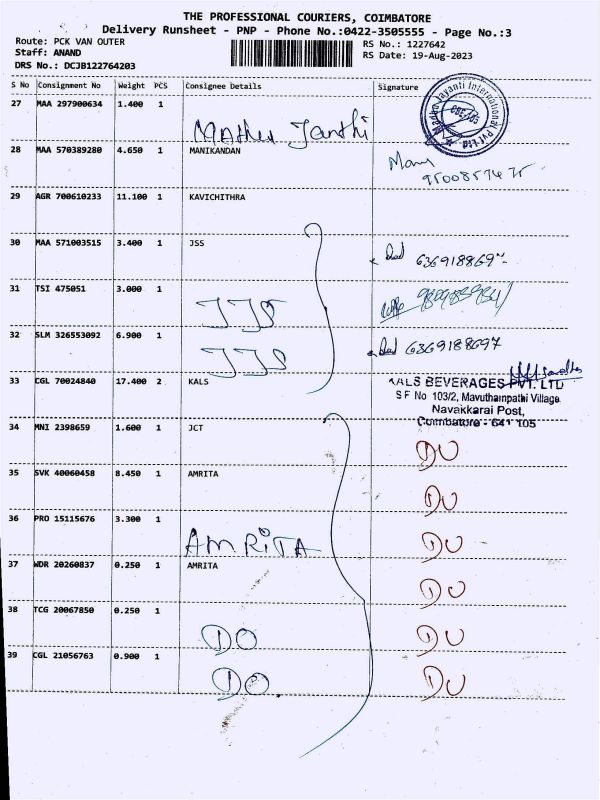 THE PROFESSIONAL COURIERS, COIMBATORE
Delivery Runsheet - PNP - Phone No.:0422-3505555 - Page No.:3
Route: PCK VAN OUTER
Staff: ANAND
DRS No.: DCJB122764203
RS No.: 1227642
RS Date: 19-Aug-2023
S No Consignment No Weight PCS Consignee Details Signature
27 MAA 297900634 1.400 1
28 MAA 570389280 4.650 1 MANIKANDAN
29 AGR 700610233 11.100 1 KAVICHITHRA
30 MAA 571003515 3.400 1 JSS
31 TSI 475051 3.000 1 JJS
32 SLM 326553092 6.900 1 JJS 6369188697
33 CGL 70024840 17.400 2 KALS
KALS BEVERAGES PVT. LTD
S F No 103/2, Mavuthampathi Village
Navakkarai Post,
Coimbatore - 641 105
34 MNI 2398659 1.600 1 JCT DU
35 SVK 40060458 8.450 1 AMRITA DU
36 PRO 15115676 3.300 1 AMRITA DU
37 WDR 20260837 0.250 1 AMRITA DU
38 TCG 20067850 0.250 1 DO DU
39 CGL 21056763 0.900 1 DO. DU